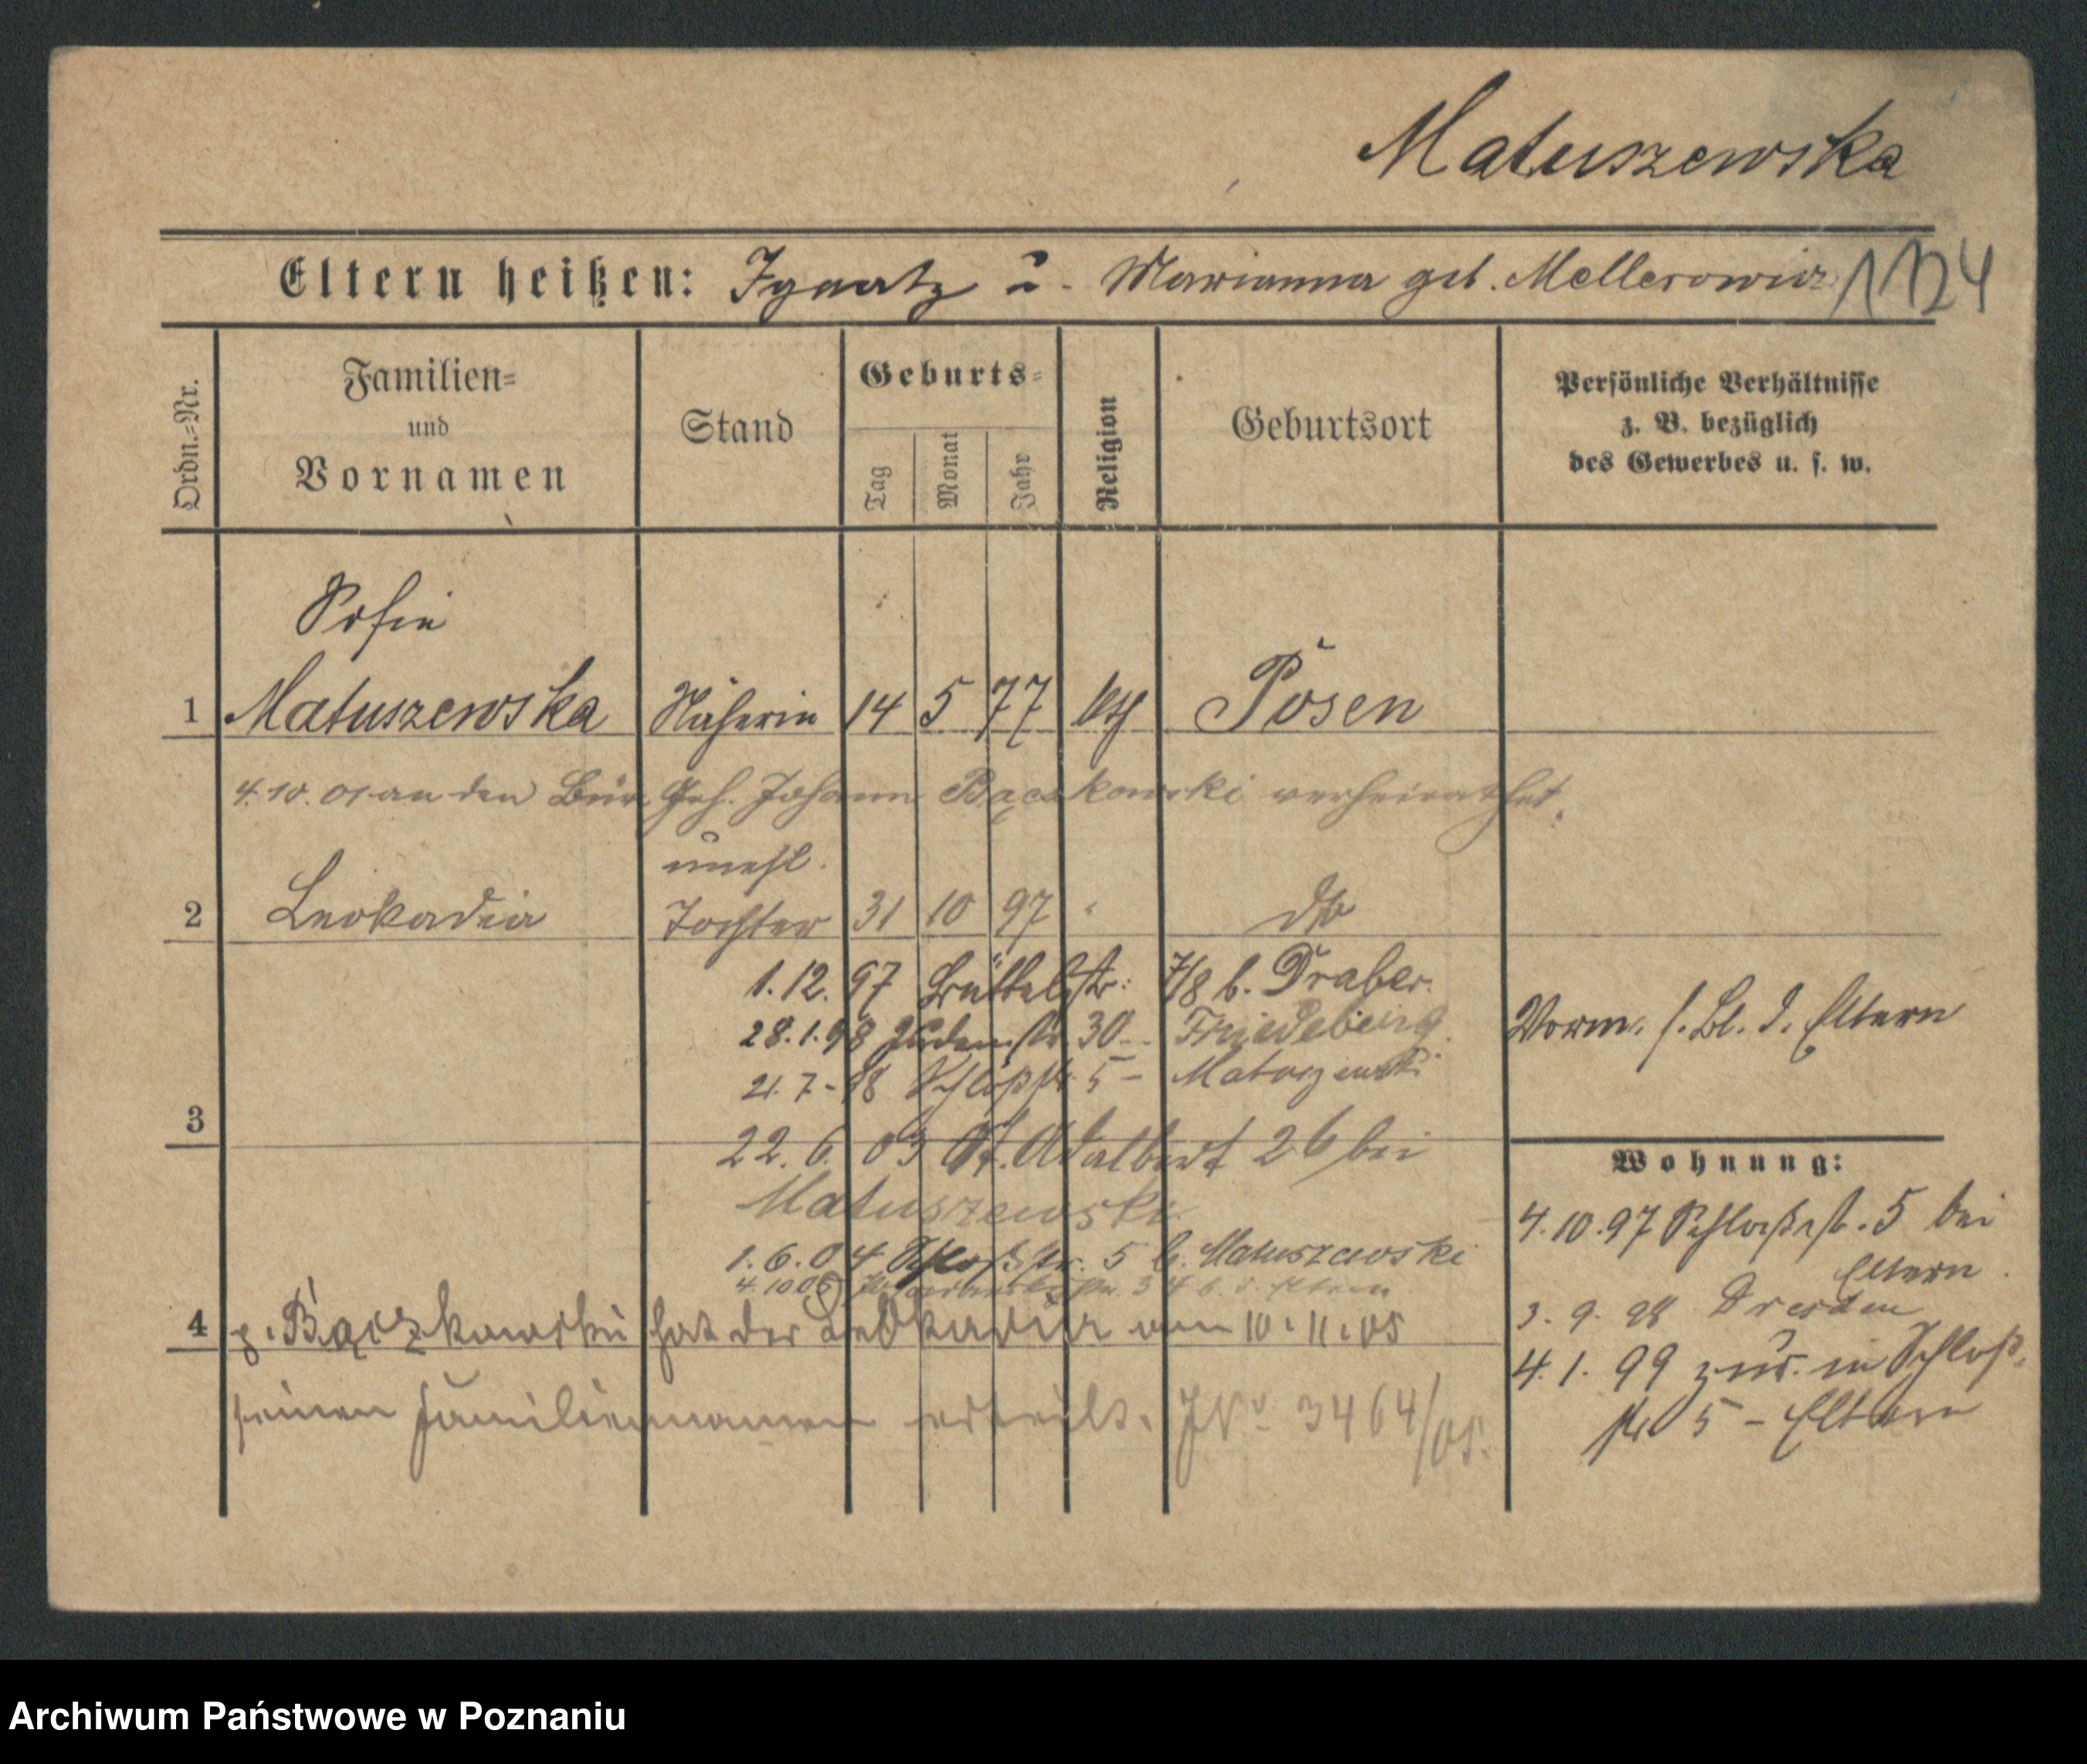 Matuszewska
Eltern heißen: Ignatz u. Marianna geb. Mellerowicz 1124
Ordn.=Nr.
Familien=
und
Vornamen
Stand
Geburts=
Tag
Monat
Jahr
Religion
Geburtsort
Persönliche Verhältnisse
z. B. bezüglich
des Gewerbes u. s. w.
Sofie
1 Matuszewska Näherin 14 5 77 kth Posen
4.10.01 an den Geh. Johann Bączkowski verheirathet.
unehl.
2 Leokadia Tochter 31 10 97 " dto
1.12.97 Büttelstr. 7/8 b. Draber.
28.1.98 Judenstr 30 - Friedeberg.
21.7-98 Schloßstr. 5 - Matuszewski
Vorm. s. Bl. d. Eltern
3
22.6.03 St. Adalbert 26 bei
Matuszewski.
1.6.04 Schloßstr. 5 b. Matuszewski
4.10.05 34 b. d. Eltern
4 p. Bączkowski hat der Leokadia am 10.11.05
seinen Familiennamen erteilt. J.No 3464/05.
Wohnung:
4.10.97 Schloßstr. 5 bei
Eltern.
3.9.98 Dresden
4.1.99 zur. in Schloß-
str 5 - Eltern
Archiwum Państwowe w Poznaniu